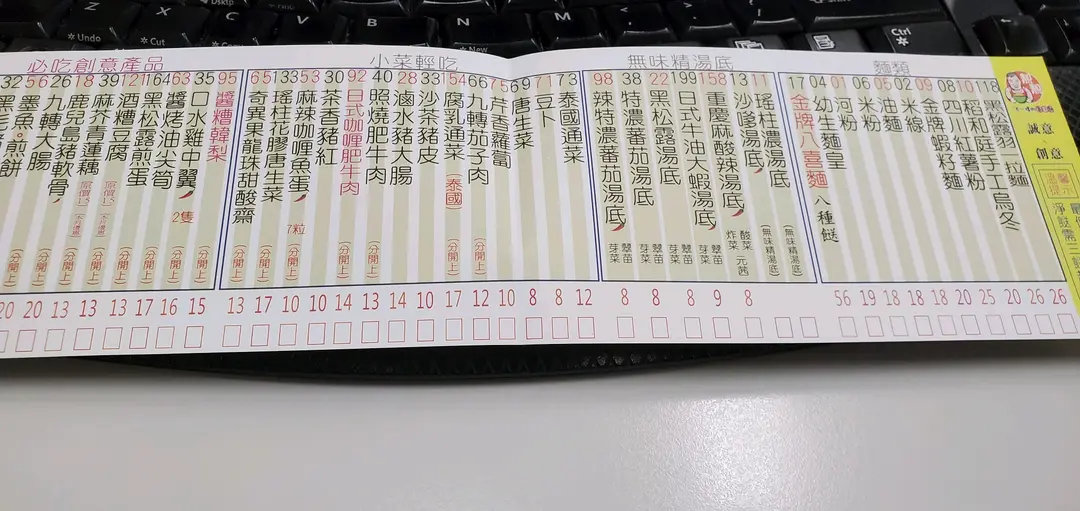 Undo
Cut
New
Ctrl
麵類
118 拉麵
10 稻和庭手工烏冬
08 四川紅薯粉
09 金牌蝦籽麵
02 米線
05 油麵
06 米粉
01 河粉
04 幼生麵皇
17 金牌八喜麵 八種餸
無味精湯底
11 瑤柱濃湯底 (無味精湯底)
13 沙嗲湯底 (無味精湯底)
158 重慶麻酸辣湯底
199 日式牛油大蝦湯底
22 黑松露湯底
38 特濃蕃茄湯底
98 辣特濃蕃茄湯底
小菜輕吃
73 泰國通菜
71 豆卜
69 唐生菜
75 芹香蘿蔔
66 九轉茄子肉 (分開上)
154 腐乳通菜 (泰國) (分開上)
33 沙茶豬皮
28 滷水豬大腸 (分開上)
40 照燒肥牛肉
92 日式咖喱肥牛肉 (分開上)
30 茶香豬紅
53 麻辣咖喱魚蛋 7粒
133 瑤柱花膠唐生菜
65 奇異果龍珠甜酸齋 (分開上)
必吃創意產品
95 醬糟韓梨 (分開上)
35 口水雞中翼 2隻 (分開上)
63 醬烤油尖筍
164 黑松露煎蛋 (分開上)
121 酒糟豆腐 (分開上)
39 麻芥青蓮藕
18 鹿兒島豬軟骨
26 九轉大腸
56 墨魚煎餅
32
20 20 13 13 13 12 17 16 15 13 17 10 10 14 13 14 10 17 12 10 8 8 12 8 8 8 9 8 56 19 18 18 18 20 25 20 26 26
誠意
創意